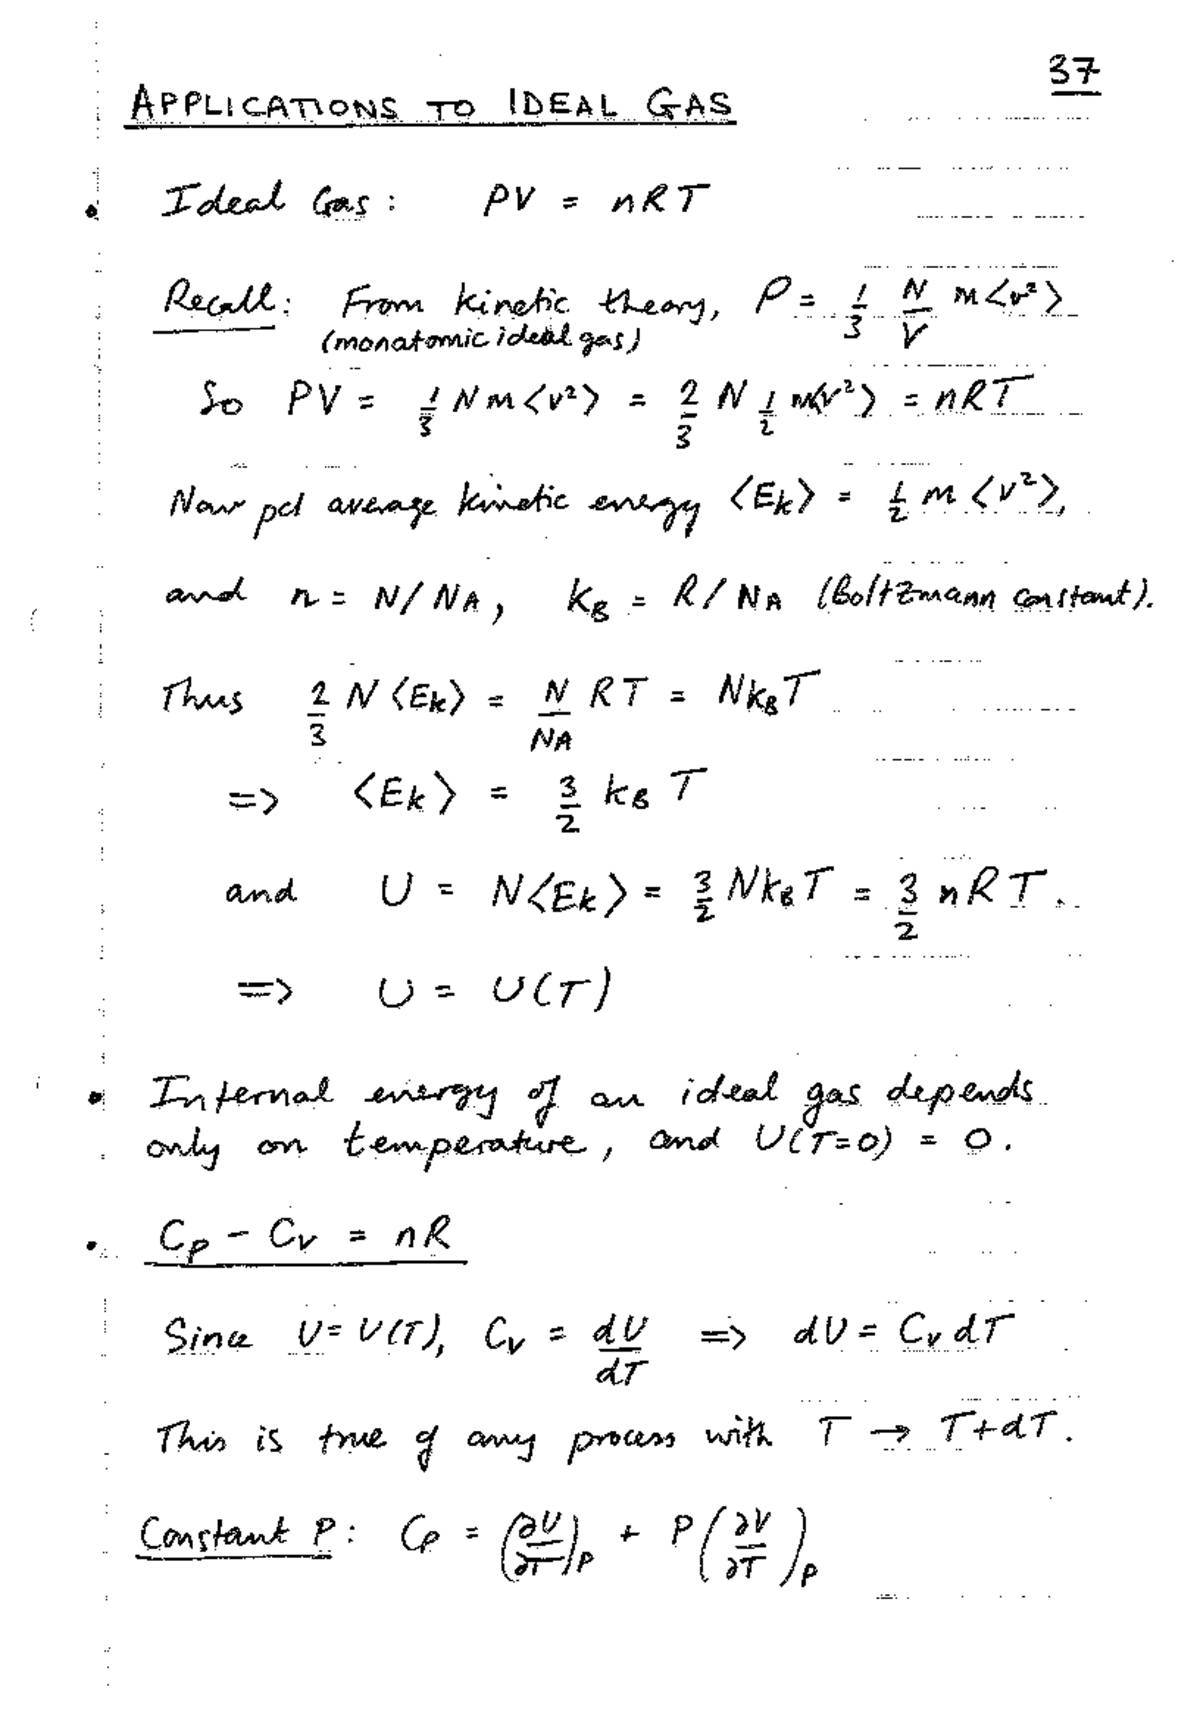 37
APPLICATIONS TO IDEAL GAS
• Ideal Gas: PV = nRT
Recall: From kinetic theory, P = 1/3 N/V m<v²>
(monatomic ideal gas)
So PV = 1/3 Nm<v²> = 2/3 N 1/2 m<v²> = nRT
Now pcl average kinetic energy <Ek> = 1/2 m <v²>,
and n = N/NA, kB = R/NA (Boltzmann constant).
Thus 2/3 N <Ek> = N/NA RT = NkBT
=> <Ek> = 3/2 kB T
and U = N<Ek> = 3/2 NkBT = 3/2 nRT.
=> U = U(T)
• Internal energy of an ideal gas depends
only on temperature, and U(T=0) = 0.
• Cp - Cv = nR
Since U = U(T), Cv = dU/dT => dU = Cv dT
This is true of any process with T → T+dT.
Constant P: Cp = (∂U/∂T)P + P(∂V/∂T)P